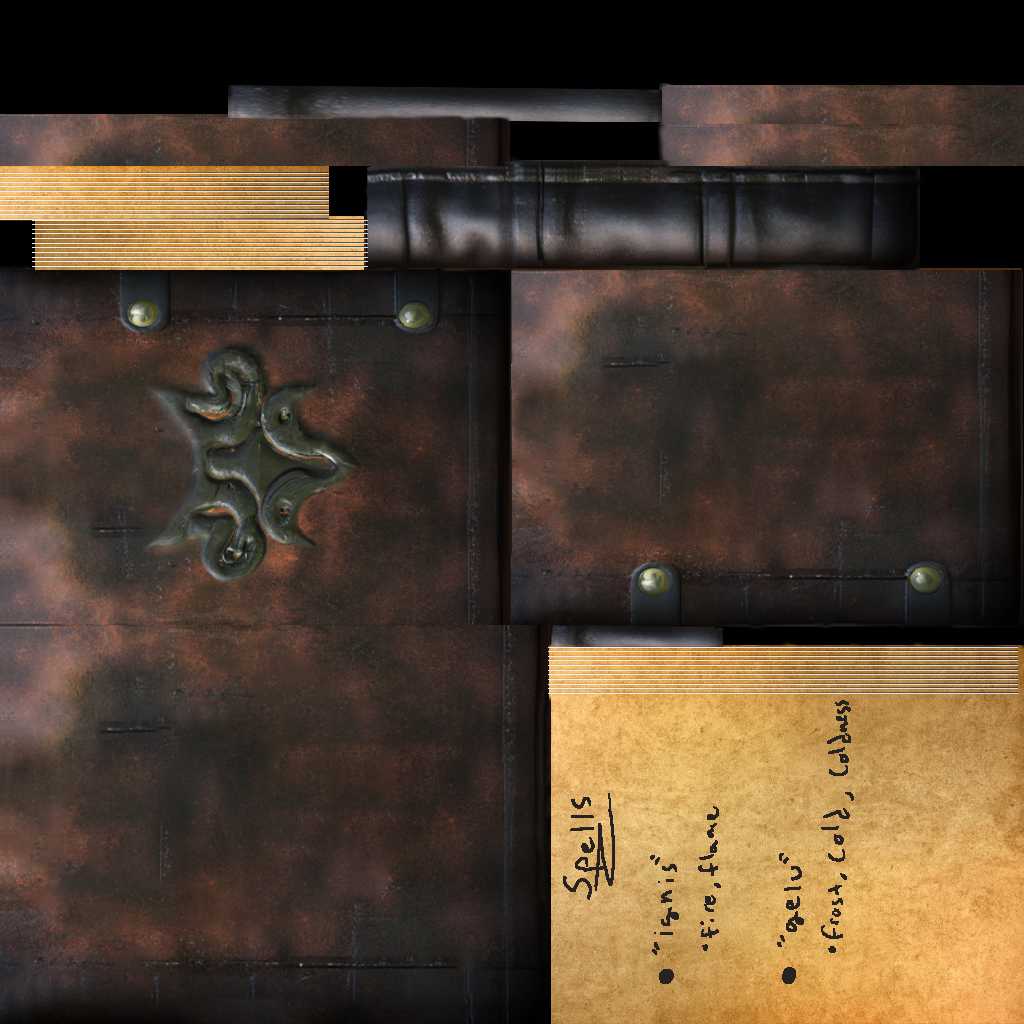 Spells
• "ignis"
• fire, flame
• "gelu"
• frost, cold, coldness